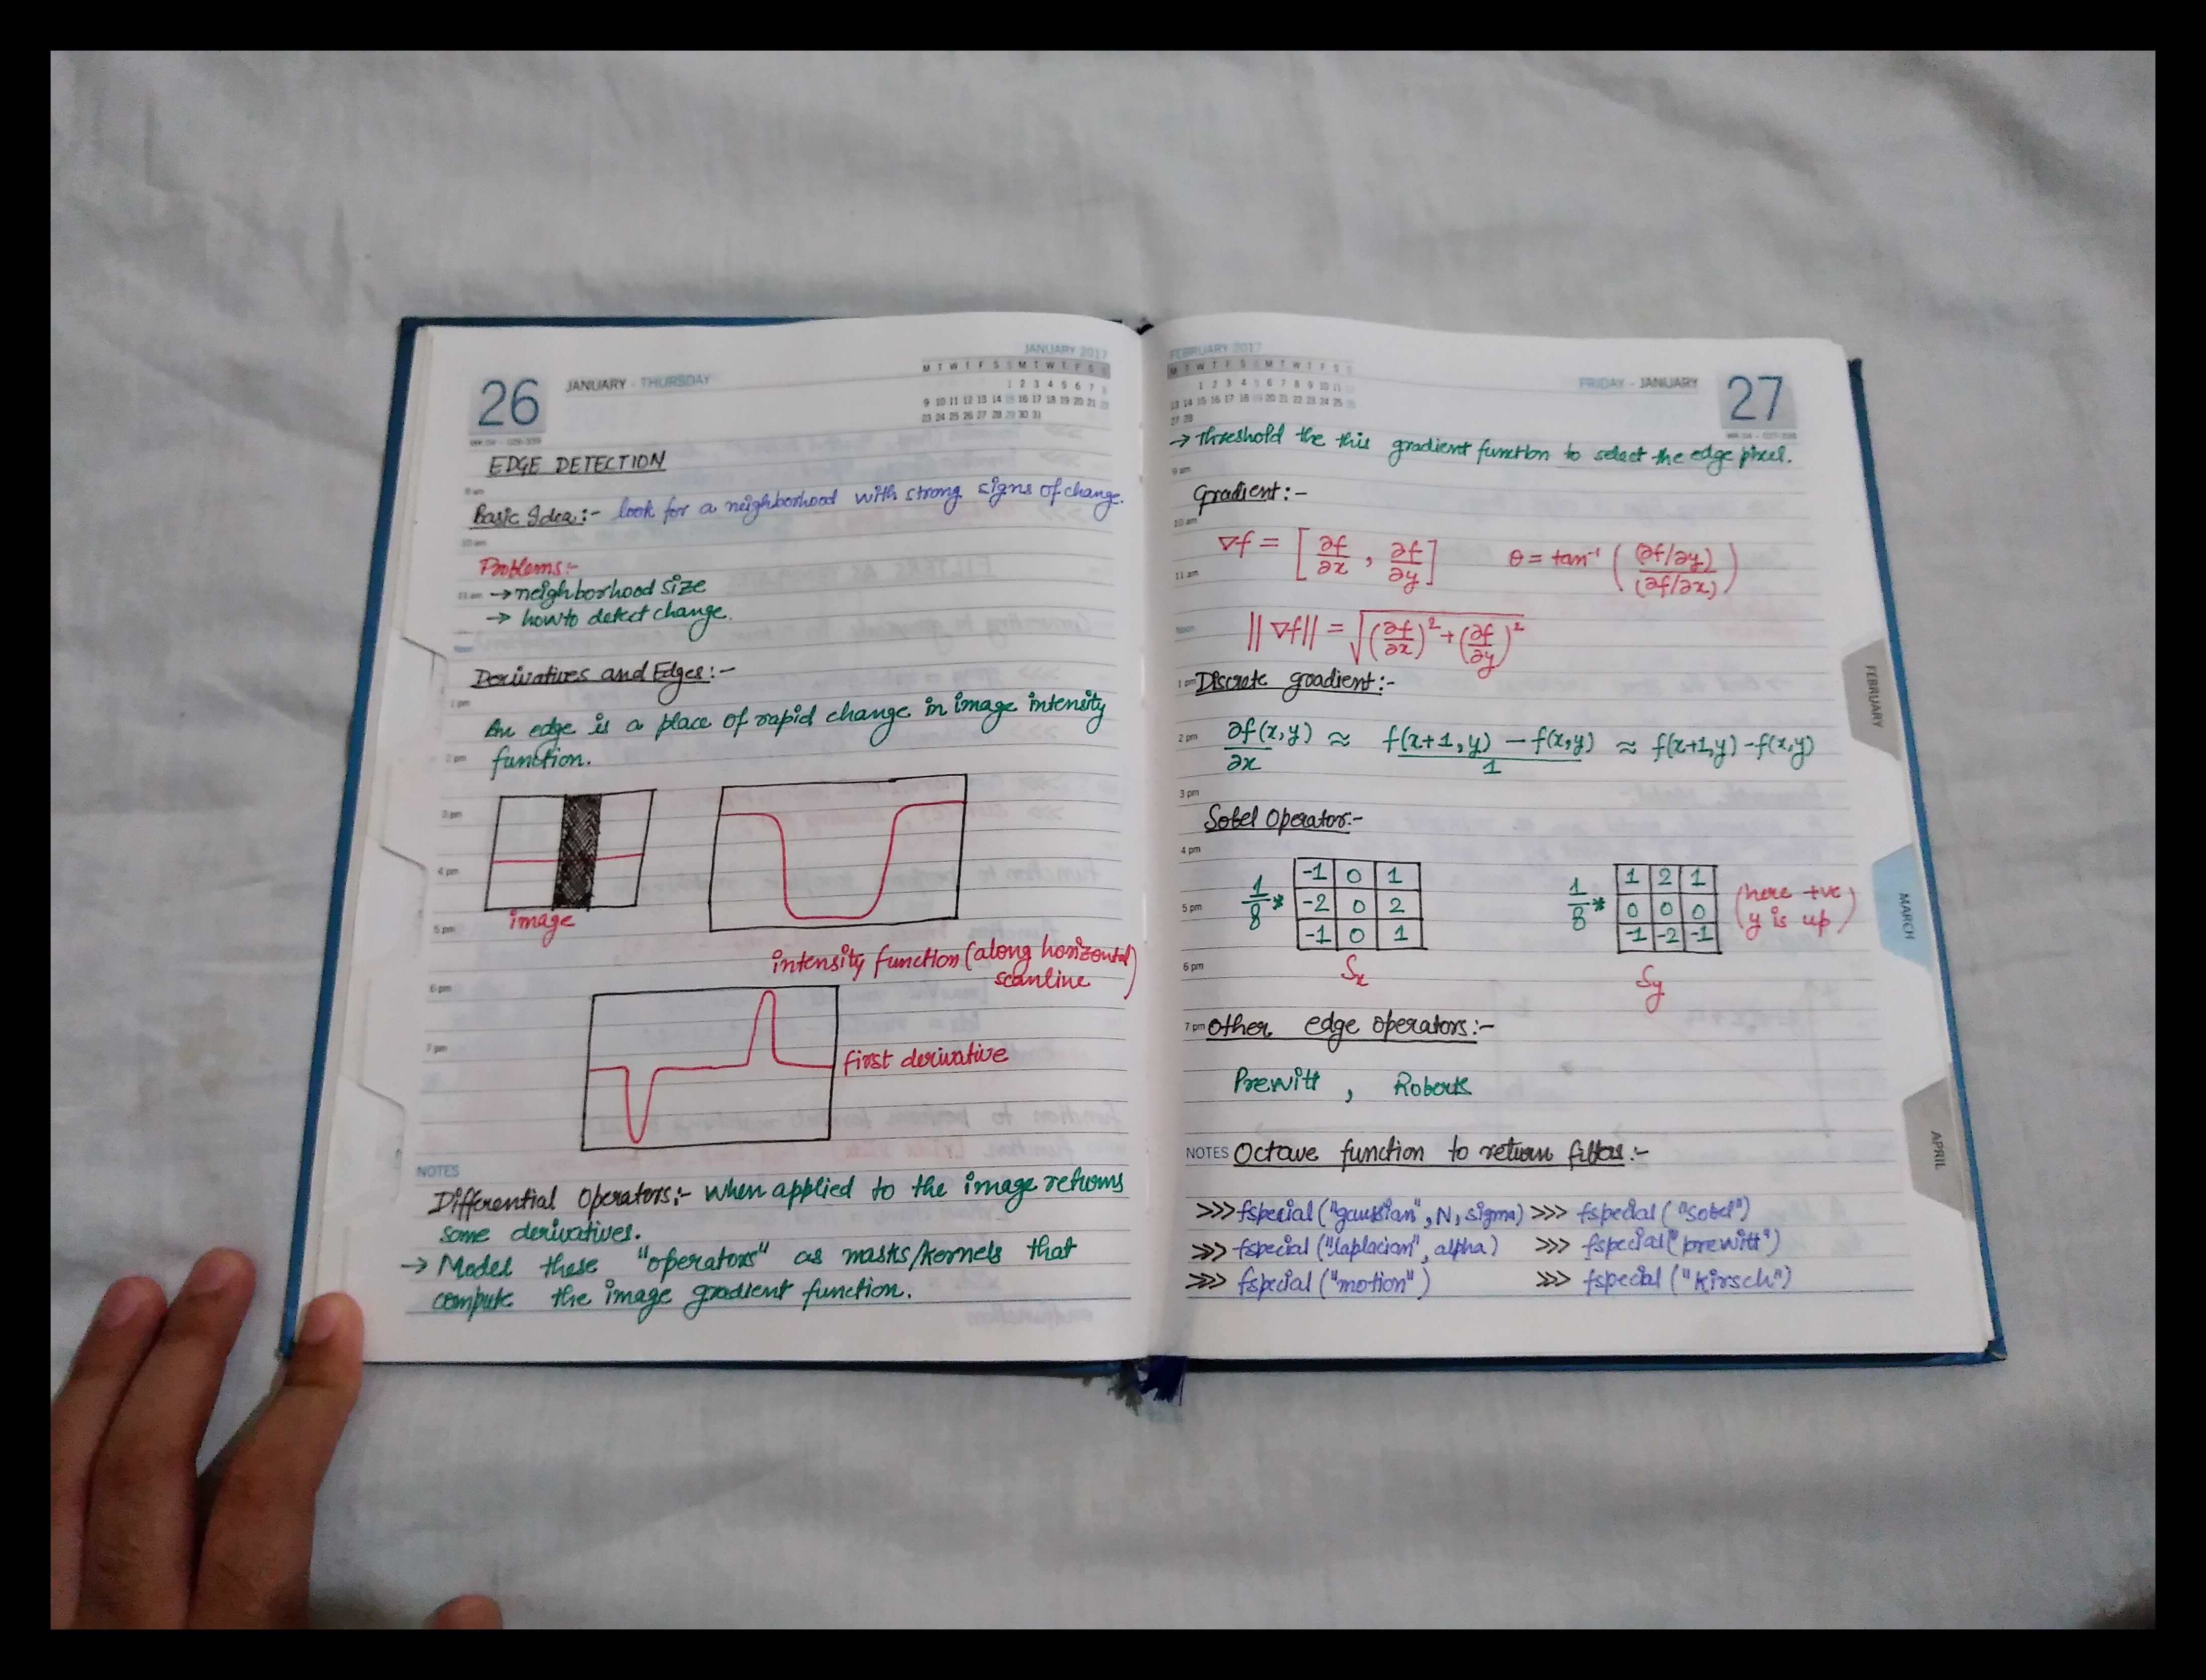 JANUARY 2017
M T W T F S S M T W T F S S
1 2 3 4 5 6 7 8
9 10 11 12 13 14 15 16 17 18 19 20 21 22
23 24 25 26 27 28 29 30 31
26 JANUARY - THURSDAY
EDGE DETECTION
Basic Idea:- look for a neighborhood with strong signs of change.
10 am
Problems:-
11 am → neighborhood size
→ how to detect change.
Noon
Derivatives and Edges:-
1 pm
An edge is a place of rapid change in image intensity
2 pm function.
3 pm
4 pm
image
5 pm
intensity function (along horizontal
scanline)
6 pm
7 pm
first derivative
NOTES
Differential Operators:- when applied to the image returns
some derivatives.
→ Model these "operators" as masks/kernels that
compute the image gradient function.
FEBRUARY 2017
M T W T F S S M T W T F S S
1 2 3 4 5 6 7 8 9 10 11 12
13 14 15 16 17 18 19 20 21 22 23 24 25 26
27 28
FRIDAY - JANUARY 27
→ Threshold the this gradient function to select the edge pixel.
9 am
Gradient:-
10 am
∇f = [∂f/∂x , ∂f/∂y] θ = tan⁻¹ ((∂f/∂y)/(∂f/∂x))
11 am
Noon
||∇f|| = √((∂f/∂x)² + (∂f/∂y)²)
1 pm Discrete gradient:-
2 pm ∂f(x,y)/∂x ≈ f(x+1,y) - f(x,y)/1 ≈ f(x+1,y) - f(x,y)
3 pm
Sobel Operator:-
4 pm
-1 0 1 1 2 1
5 pm 1/8 * -2 0 2 1/8 * 0 0 0 (here +ve y is up)
-1 0 1 -1 -2 -1
6 pm
Sx Sy
7 pm Other edge operators:-
Prewitt , Roberts
NOTES Octave function to return filters:-
>>> fspecial ("gaussian", N, sigma) >>> fspecial ("Sobel")
>>> fspecial ("laplacian", alpha) >>> fspecial("prewitt")
>>> fspecial ("motion") >>> fspecial ("Kirsch")
FEBRUARY
MARCH
APRIL